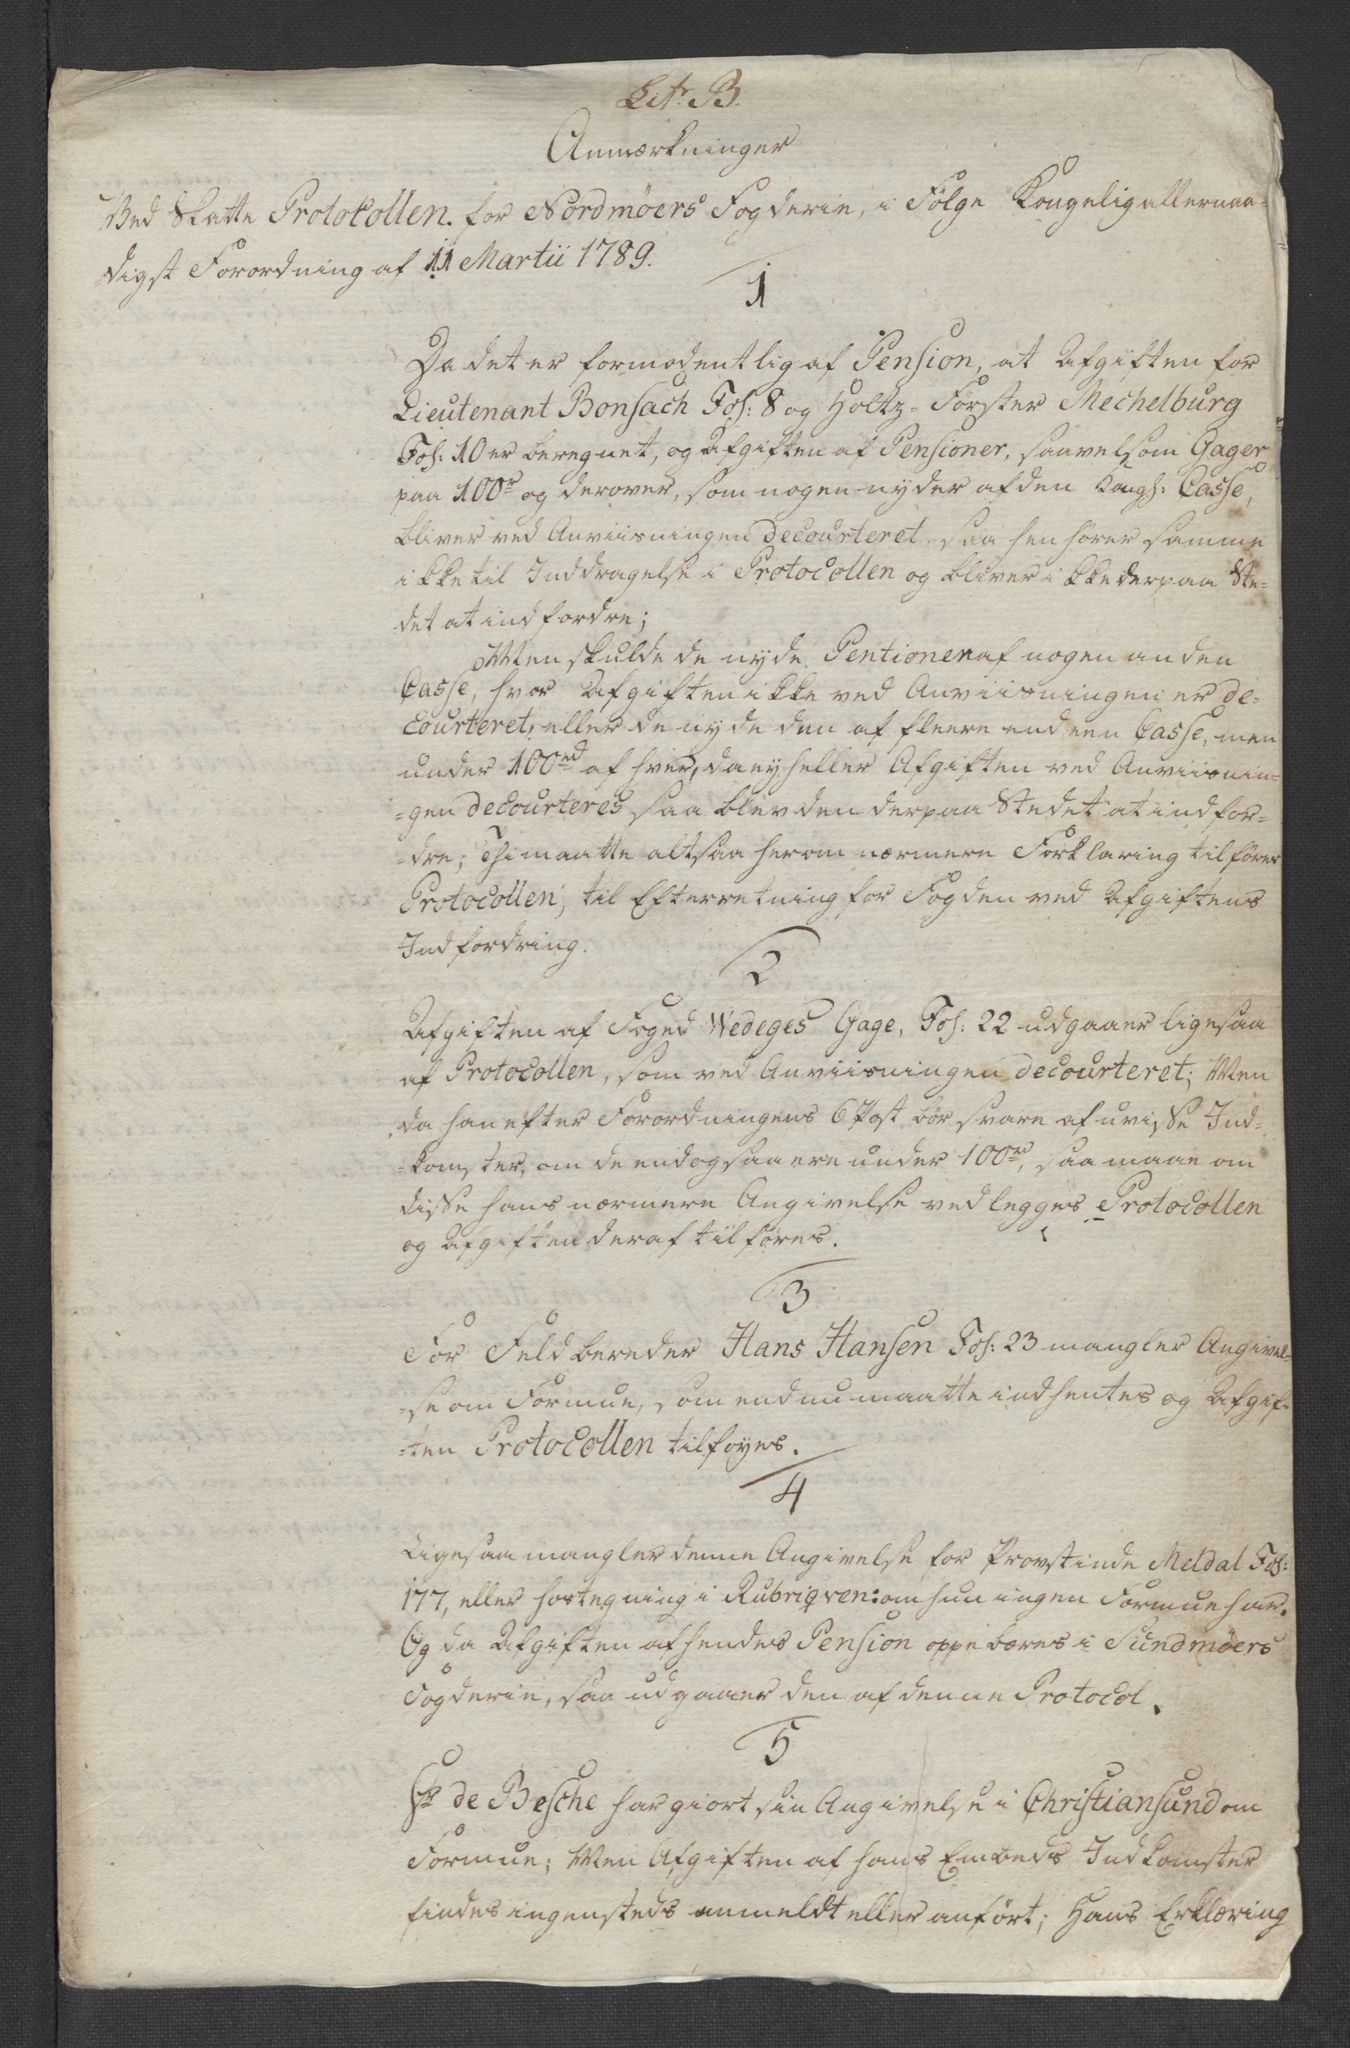 Litr B.
Anmærkninger
Ved Skatte Protokollen for Nordmøers Fogderie, i Følge Kongelig allernaa-
digst Forordning af 11 Martii 1789.
1
Da det er formodentlig af Pension, at Afgiften for
Lieutenant Bonsach Fol: 8 og Holtz-Førster Mechelburg
Fol: 10 er beregnet, og Afgiften af Pensioner, saavelsom Gager
paa 100r og derover, som nogen nyder af den Kongl: Casse,
bliver ved Anviisningen decourteret, saa henhører samme
ikke til Inddragelse i Protocollen og bliver ikke derpaa Ste-
det at indfordre;
Men skulde de nyde Pentionen af nogen anden
Casse, hvor Afgiften ikke ved Anviisningen er de-
courteret, eller de nyde den af fleere end een Casse, men
under 100rd af hver, da ey heller Afgiften ved Anviisnin-
-gen decourteres saa blev den derpaa Stedet at indfor-
-dre; Thi maatte altsaa herom nærmere Forklaring tilføres
Protocollen, til Efterretning for Fogden ved Afgiftens
Indfordring.
2
Afgiften af Foged Wedeges Gage, Fol: 22 udgaaer ligesaa
af Protocollen, som ved Anviisningen decourteret; Men
da han efter Forordningens 6 Post bør svare af uvisse Ind-
-komster, om de endogsaa ere under 100rd, saa maae om
disse hans nærmere Angivelse vedlegges Protocollen
og Afgiften deraf tilføres.
3
For Feldbereder Hans Hansen Fol: 23 mangler Angivel-
-se om Formue, som endnu maatte indhentes og Afgif-
-ten Protocollen tilføyes.
4
Ligesaa mangler denne Angivelse for Provstinde Meldal Fol:
177, eller hostegning i Rubriqven: om hun ingen Formue har.
Og da Afgiften af hendes Pension oppebæres i Sundmøers
Fogderie, saa udgaaer den af denne Protocol.
5
Hr de Besche har giort sin Angivelse i Christiansund om
Formue; Men Afgiften af hans Embeds Indkomster
findes ingensteds anmeldt eller anført; Hans Erklæring